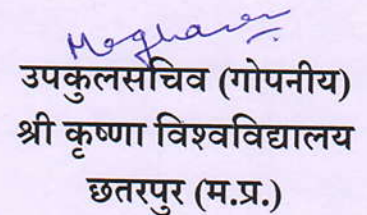 उपकुलसचिव (गोपनीय)
श्री कृष्णा विश्वविद्यालय
छतरपुर (म.प्र.)